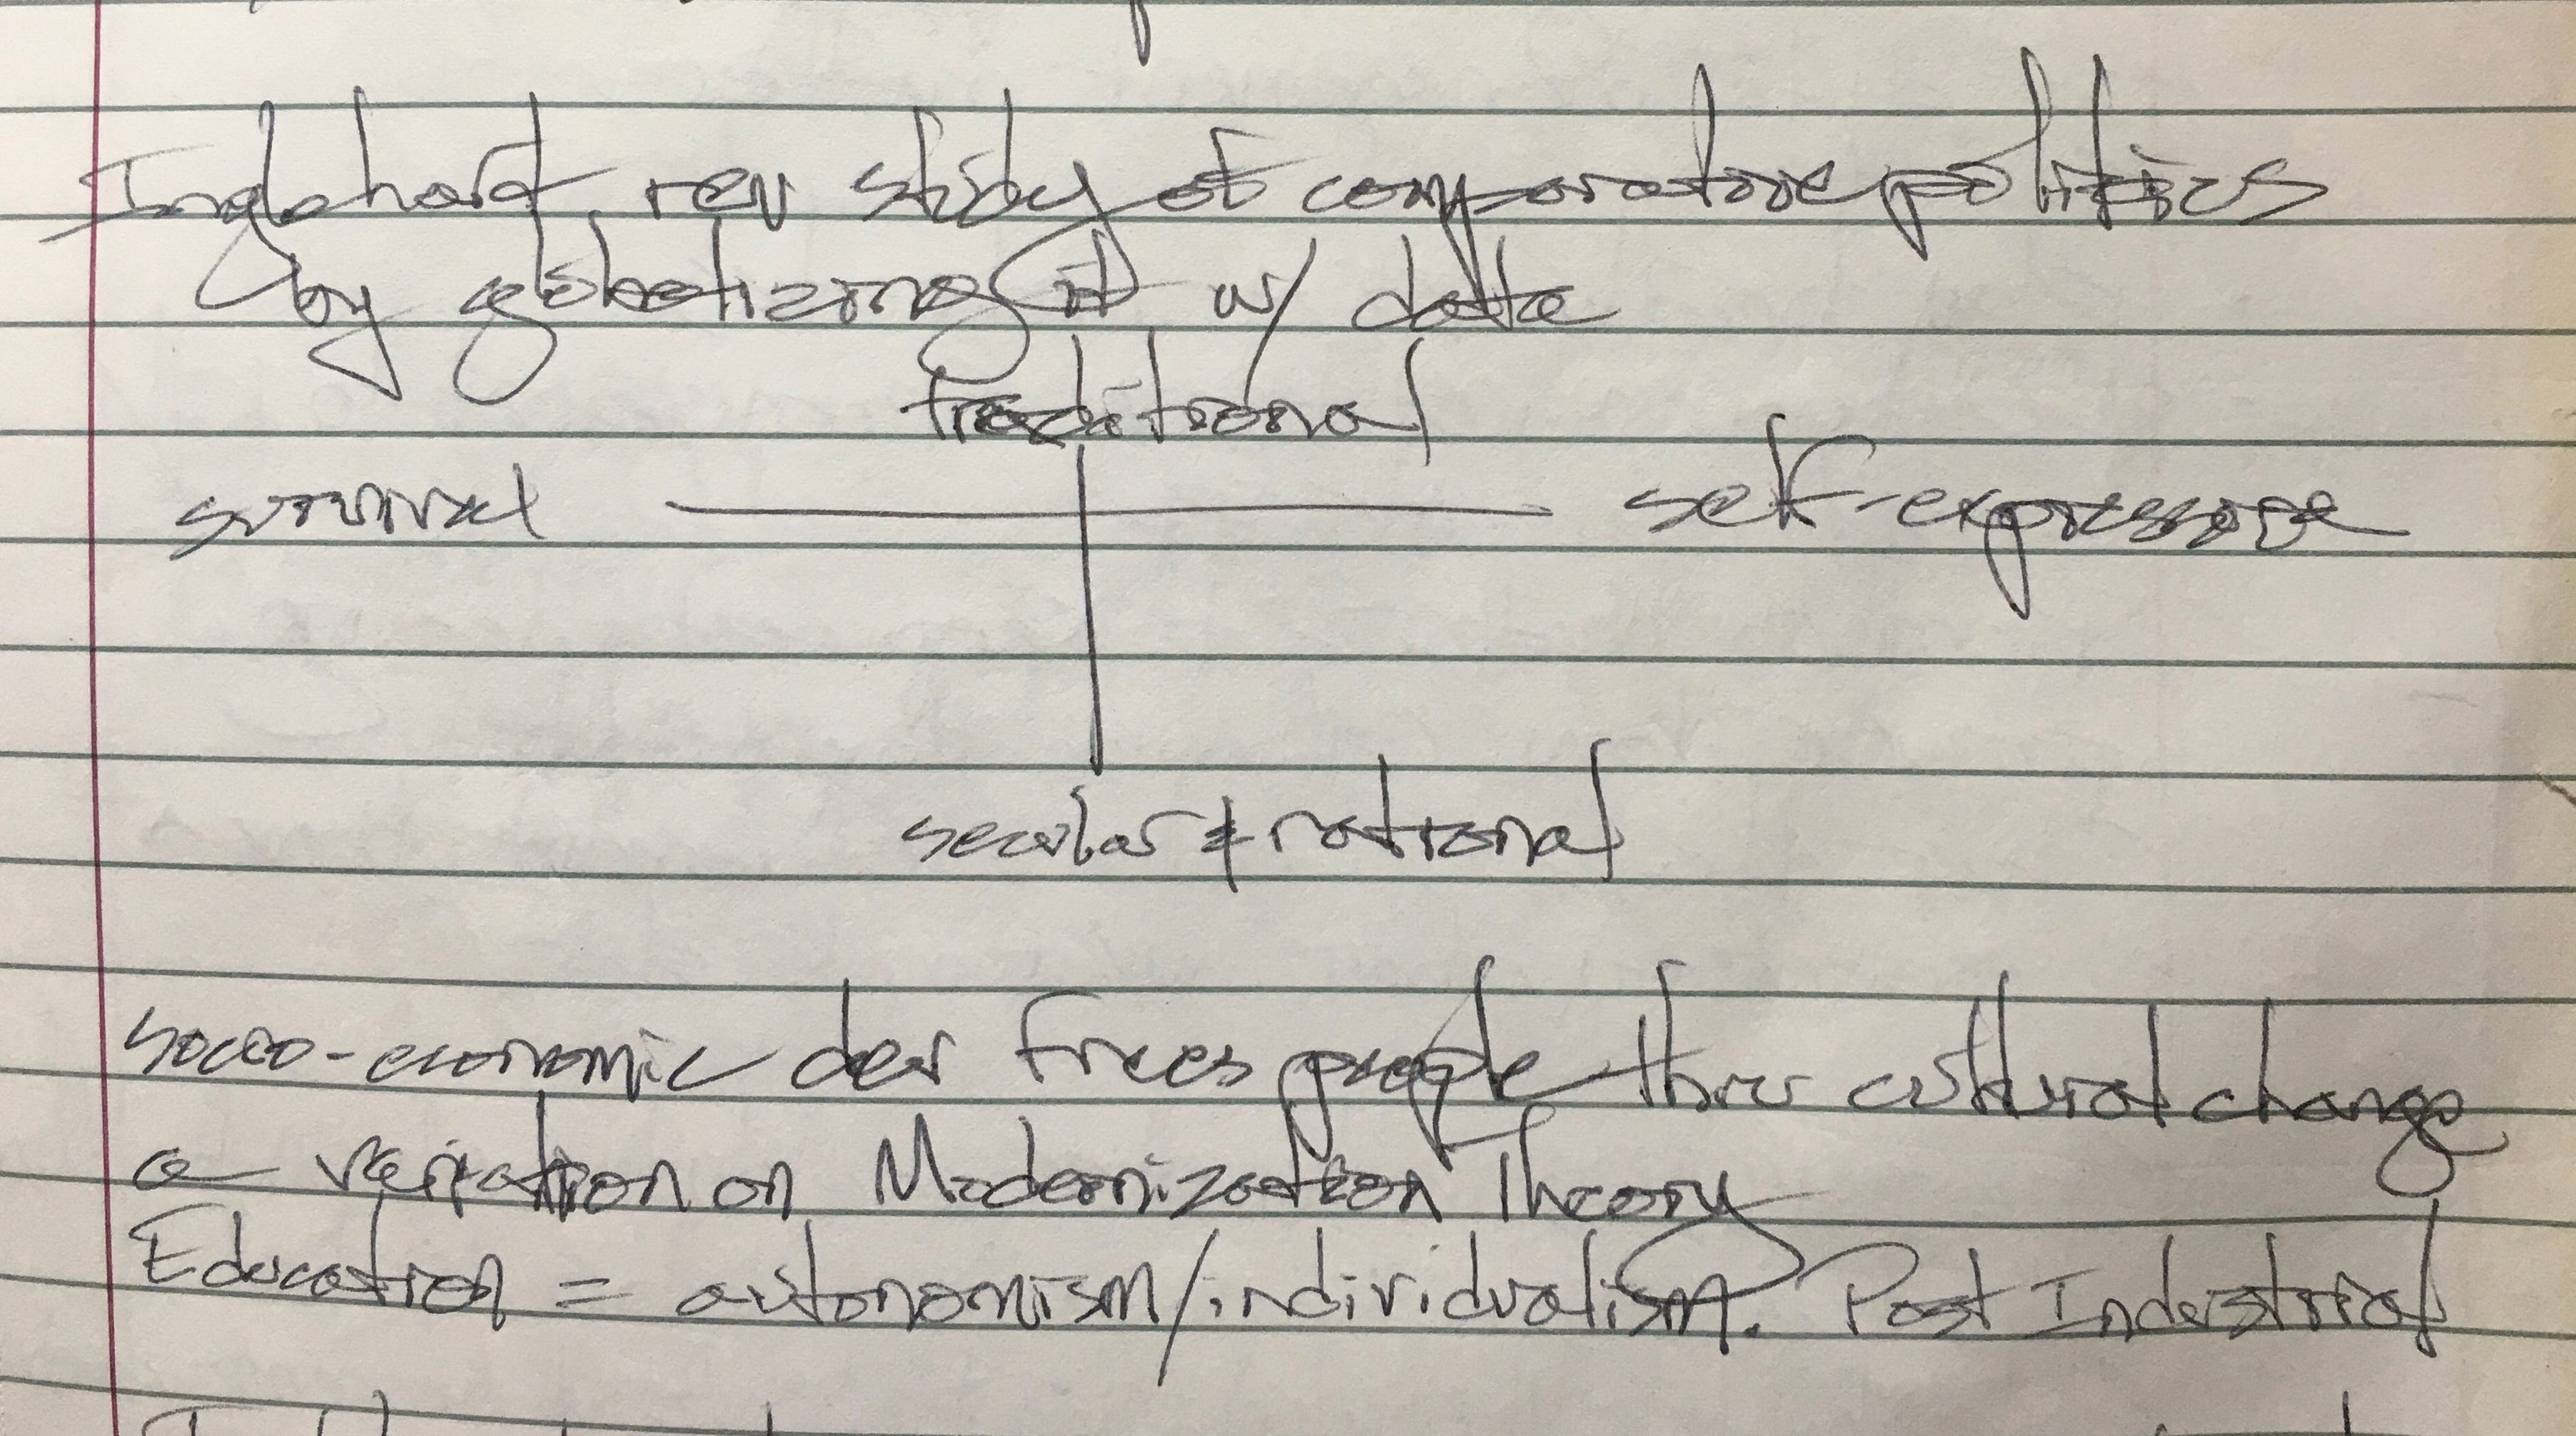 Inglehart rev study of comparative politics
by globalizing it w/ data
traditional
survival self-expressive
secular & rational
socio-economic dev frees people thru cultural change
a variation on Modernization Theory
Education = autonomism/individualism. Post Industrial